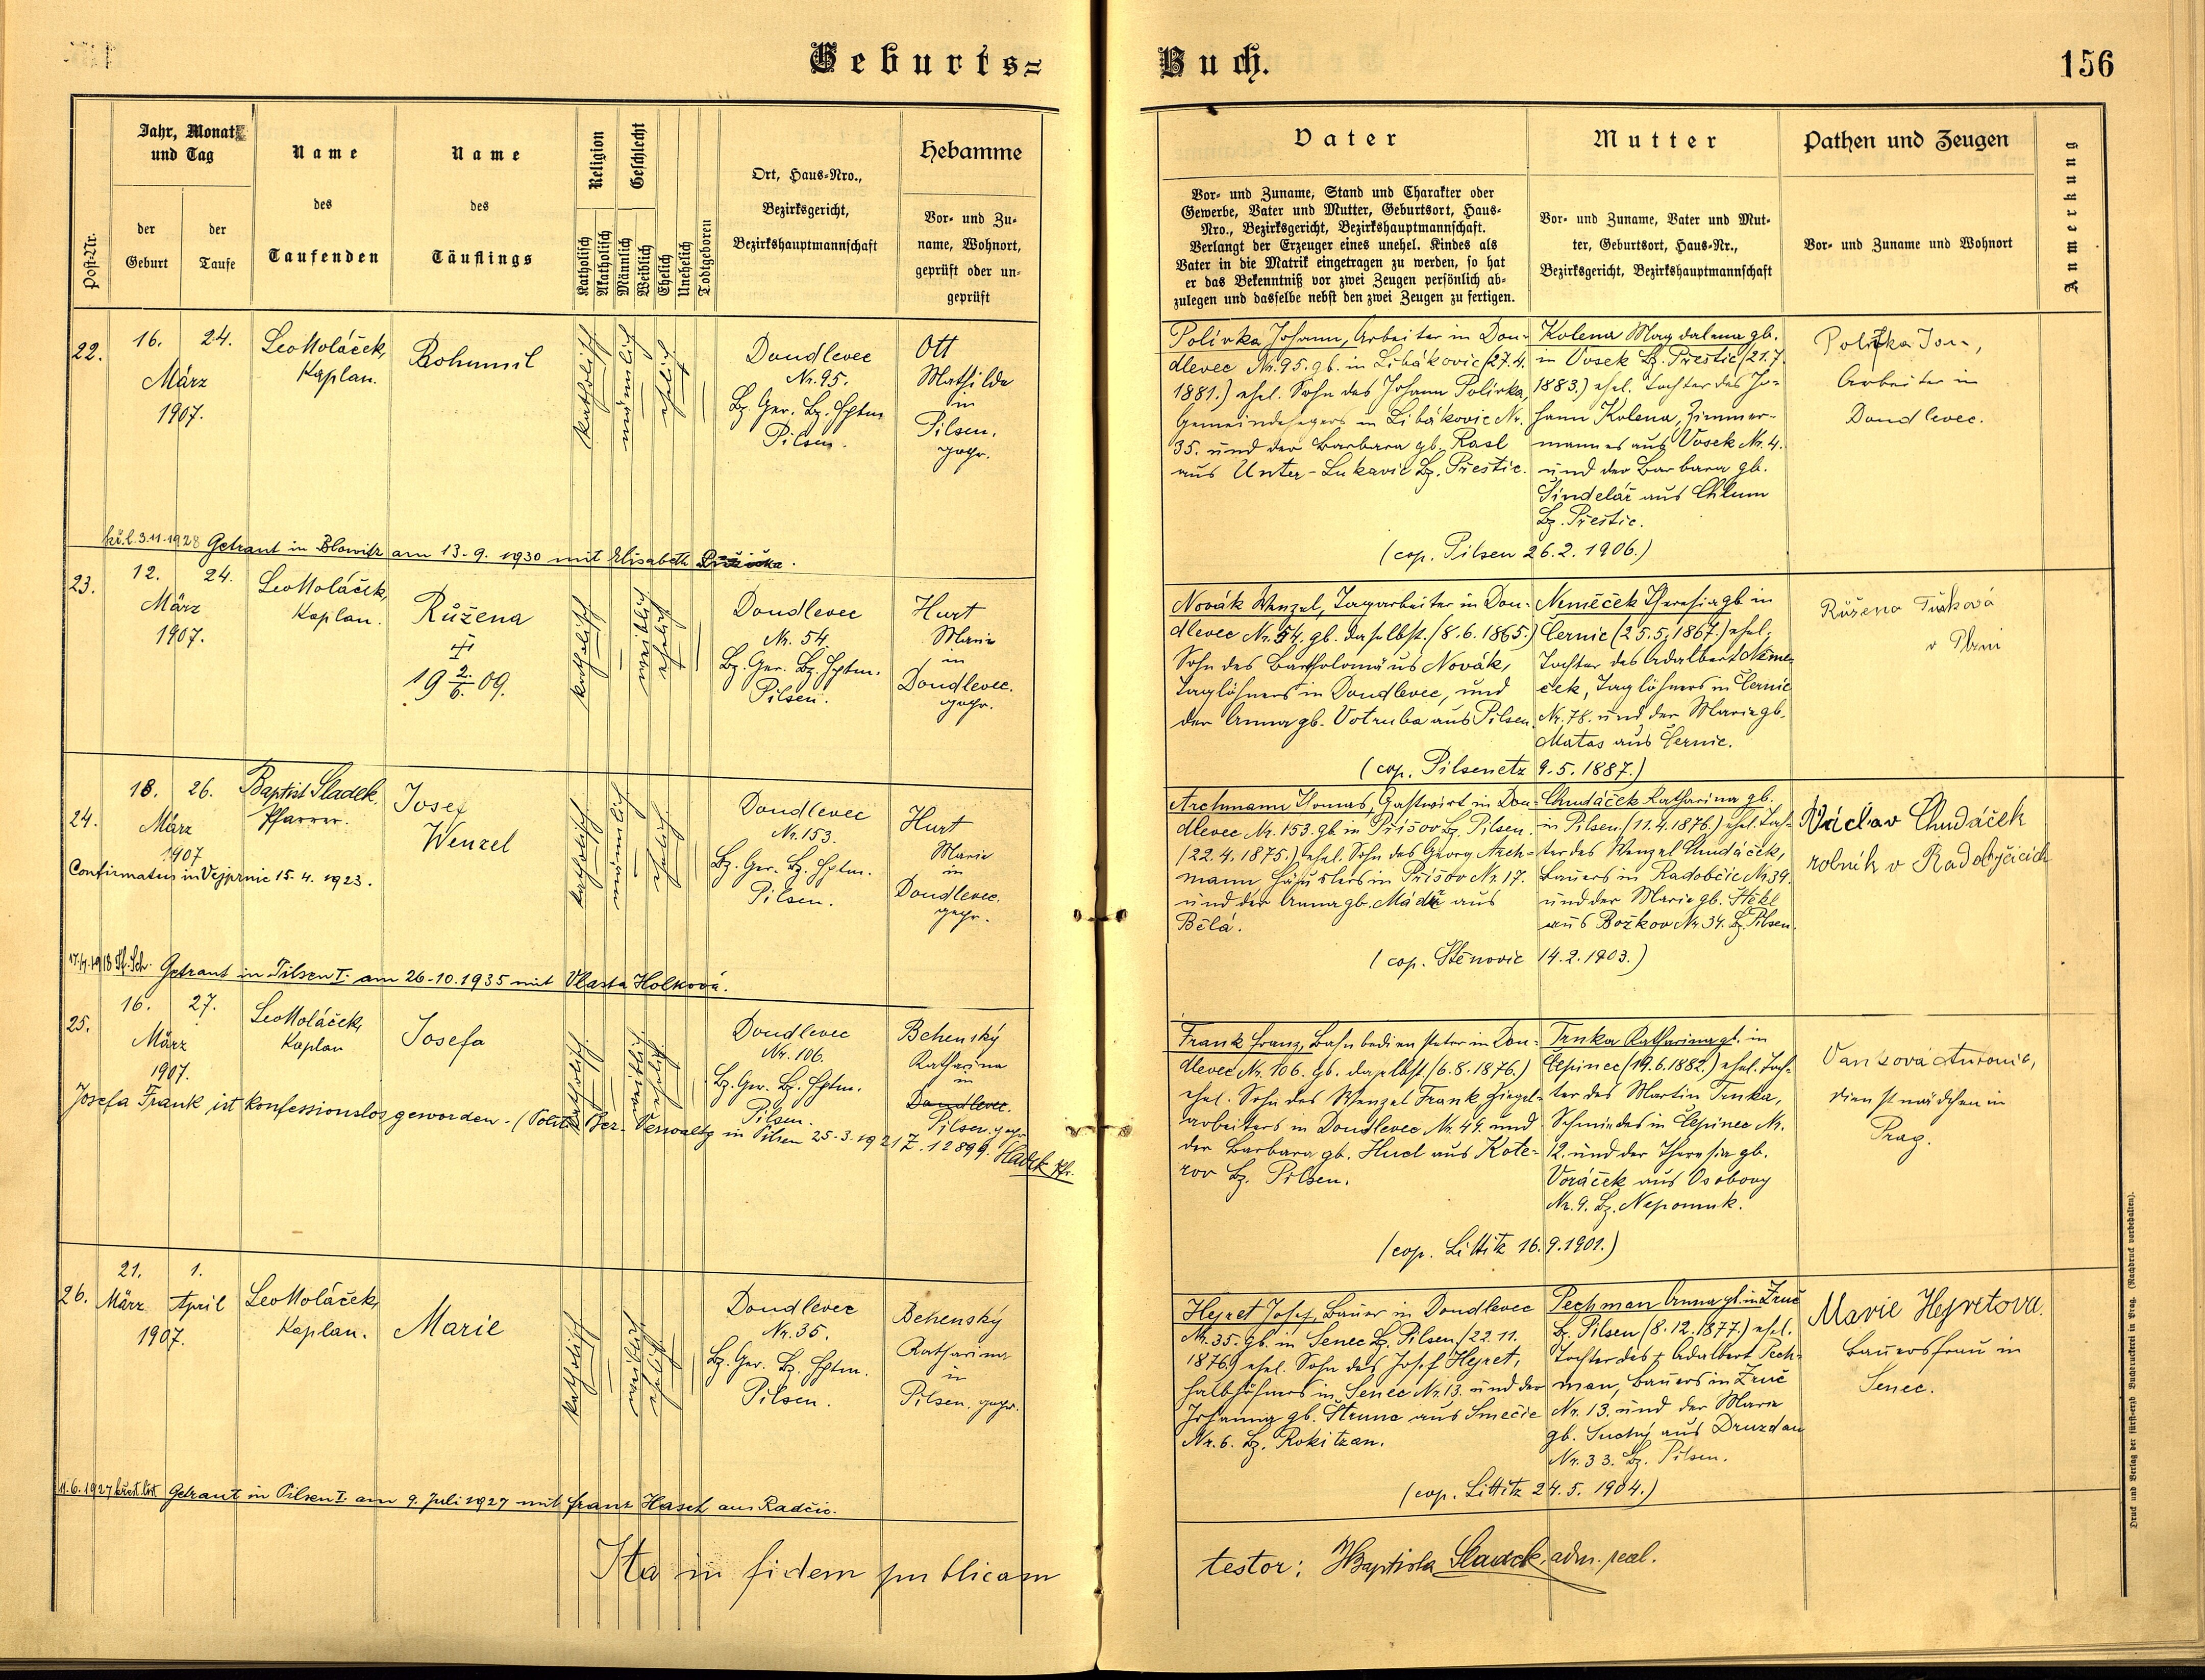 Geburts=
Buch.
156
Post-Nr.
Jahr, Monat
und Tag
der
Geburt
der
Taufe
Name
des
Taufenden
Name
des
Täuflings
Religion
Katholisch
Akatholisch
Geschlecht
Männlich
Weiblich
Ehelich
Unehelich
Todtgeboren
Ort, Haus-Nro.,
Bezirksgericht,
Bezirkshauptmannschaft
Hebamme
Vor- und Zu-
name, Wohnort,
geprüft oder un-
geprüft
Vater
Vor- und Zuname, Stand und Charakter oder
Gewerbe, Vater und Mutter, Geburtsort, Haus-
Nro., Bezirksgericht, Bezirkshauptmannschaft.
Verlangt der Erzeuger eines unehel. Kindes als
Vater in die Matrik eingetragen zu werden, so hat
er das Bekenntniß vor zwei Zeugen persönlich ab-
zulegen und dasselbe nebst den zwei Zeugen zu fertigen.
Mutter
Vor- und Zuname, Vater und Mut-
ter, Geburtsort, Haus-Nr.,
Bezirksgericht, Bezirkshauptmannschaft
Pathen und Zeugen
Vor- und Zuname und Wohnort
Anmerkung
22.
16.
24.
März
1907.
Leo Moláček,
Kaplan.
Bohumil
katholisch
männlich
ehelich
Doudlevec
Nr. 95.
Bz. Ger. Bz. Hptm.
Pilsen.
Ott
Mathilde
in
Pilsen.
gepr.
Polívka Johann, Arbeiter in Dou-
dlevec Nr. 95. gb. in Libákovic (27.4.
1881.) ehel. Sohn des Johann Polívka,
Gemeindehegers in Libákovic Nr.
35. und der Barbara gb. Rasl
aus Unter-Lukavic Bz. Přeštic.
Kolena Magdalena gb.
in Vosek Bz. Přeštic (21.7.
1883.) ehel. Tochter des Jo-
hann Kolena, Zimmer-
mannes aus Vosek Nr. 4.
und der Barbara gb.
Šindelář aus Chlum
Bz. Přeštic.
(cop. Pilsen 26.2. 1906.)
Polívka Jan,
Arbeiter in
Doudlevec.
kř.l. 3.11.1928 Getraut in Blowitz am 13.-9. 1930 mit Elisabeth Růžička.
23.
12.
24.
März
1907.
Leo Moláček,
Kaplan.
Růžena
19 2./6. 09.
katholisch
weiblich
ehelich
Doudlevec
Nr. 54.
Bz. Ger. Bz. Hptm.
Pilsen.
Hurt
Marie
in
Doudlevec.
gepr.
Novák Wenzel, Tagarbeiter in Dou-
dlevec Nr. 54. gb. daselbst. (8.6.1865.)
Sohn des Bartholomäus Novák,
Taglöhners in Doudlevec, und
der Anna gb. Votruba aus Pilsen.
Němeček Theresia gb. in
Černic (25.5.1867.) ehel.
Tochter des Adalbert Něme-
ček, Taglöhners in Černic
Nr. 78. und der Marie gb.
Matas aus Černic.
(cop. Pilsenetz 9.5.1887.)
Růžena Tučková
v Plzni
24.
18.
26.
März
1907
Baptist Sladek
Pfarrer.
Josef
Wenzel
Confirmatus in Vejprnic 15. 4. 1923.
katholisch
männlich
ehelich
Doudlevec
Nr. 153.
Bz. Ger. Bz. Hptm.
Pilsen.
Hurt
Marie
in
Doudlevec.
gepr.
Archmann Thomas, Gastwirt in Dou-
dlevec Nr. 153. gb. in Příšov Bz. Pilsen.
(22.4.1875.) ehel. Sohn des Georg Arch-
mann Häuslers in Příšov Nr. 17.
und der Anna gb. Mádr aus
Bělá.
Chudáček Katharina gb.
in Pilsen. (11.4.1876.) ehel. Toch-
ter des Wenzel Chudáček,
Bauers in Radobčic Nr. 39.
und der Marie gb. Stěkl
aus Božkov Nr. 34. Bz. Pilsen.
(cop. Stěnovic 14.2.1903.)
Václav Chudáček
rolník v Radobyčicích
Getraut in Pilsen I. am 26.-10.1935 mit Vlasta Holková.
25.
16.
27.
März
1907.
Leo Moláček,
Kaplan
Josefa
katholisch
weiblich
ehelich
Doudlevec
Nr. 106.
Bz. Ger. Bz. Hptm.
Pilsen.
Behenský
Katharina
in
Doudlevec.
Pilsen. gepr.
Josefa Frank ist konfessionslos geworden. (Polit. Bez. Verwaltg in Pilsen 25.3.1921 Z. 12899. Sladek Pfr.
Frank Franz, Bahnbediensteter in Dou-
dlevec Nr. 106. gb. daselbst. (6.8.1876.)
ehel. Sohn des Wenzel Frank Ziegel-
arbeiters in Doudlevec Nr. 44. und
der Barbara gb. Hucl aus Kote-
rov Bz. Pilsen.
Trnka Katharina gb. in
Čepinec (19.6.1882.) ehel. Toch-
ter des Martin Trnka,
Schmiedes in Čepinec Nr.
12. und der Theresia gb.
Voráček aus Osobovy
Nr. 9. Bz. Nepomuk.
(cop. Littitz 16.9.1901.)
Vaňková Antonie,
Dienstmädchen in
Prag.
26.
21.
1.
März
April
1907.
Leo Moláček,
Kaplan.
Marie
katholisch
weiblich
ehelich
Doudlevec
Nr. 35.
Bz. Ger. Bz. Hptm.
Pilsen.
Behenský
Katharina
in
Pilsen. gepr.
Hejret Josef, Bauer in Doudlevec
Nr. 35. gb. in Senec Bz. Pilsen (22.11.
1876.) ehel. Sohn des Josef Hejret,
Halbhüfners in Senec Nr. 13. und der
Johanna gb. Strunc aus Smečic
Nr. 6. Bz. Rokitzan.
Pechman Anna gb. in Zruč
Bz. Pilsen (8.12.1877.) ehel.
Tochter des † Adalbert Pech-
man, Bauers in Zruč
Nr. 13. und der Marie
gb. Suchý aus Druzdau
Nr. 33. Bz. Pilsen.
(cop. Littitz 24.5. 1904.)
Marie Hejretova.
Bauersfrau in
Senec.
11.6.1927 křest. list Getraut in Pilsen I. am 9. Juli 1927 mit Franz Hasch aus Radčic.
Ita in fidem publicam
testor: JBaptista Sladek, adm. paal.
Druck und Verlag der fürst-erzb. Buchdruckerei in Prag. (Nachdruck vorbehalten).